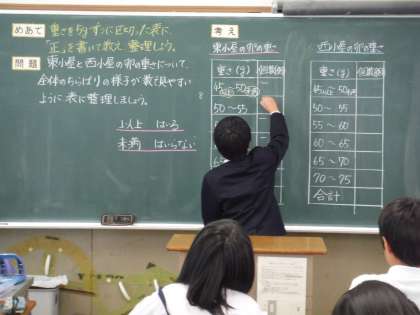 めあて
重さを5gずつに区切った表に
「正」を書いて数え、整理しよう。
問題
東小屋と西小屋の卵の重さについて、
全体のちらばりの様子が数で見やすい
ように表に整理しましょう。
以上 はいる
未満 はいらない
考え
東小屋の卵の重さ
重さ(g) 個数(個)
45以上~50未満
50~55
西小屋の卵の重さ
重さ(g) 個数(個)
45以上~50未満
50~55
55~60
60~65
65~70
70~75
合計